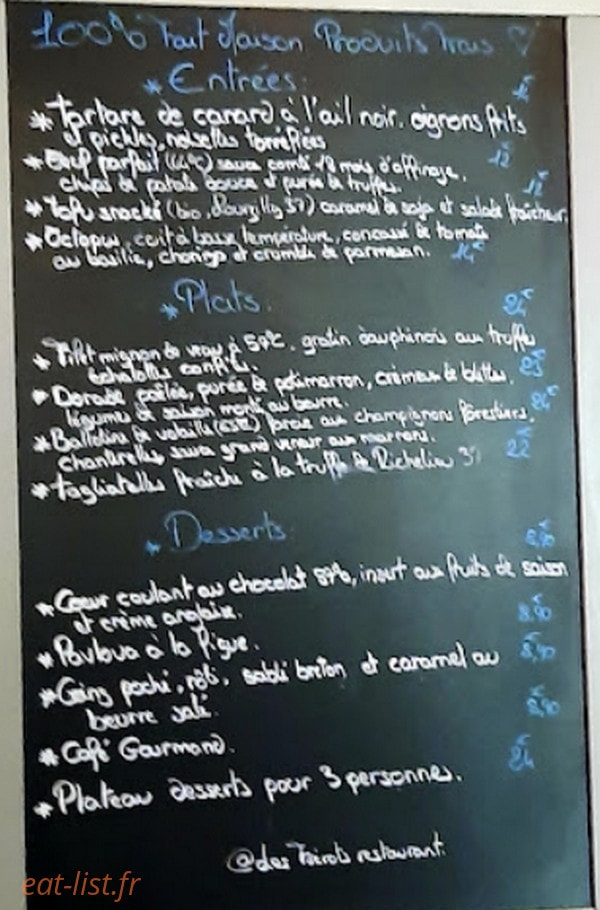 100% Fait Maison Produits Frais
* Entrées.
* Tartare de canard à l'ail noir. oignons frits 12€
et pickles, noisettes torréfiées
* Oeuf parfait (64°C) sauce comté 18 mois d'affinage. 12€
chips de patate douce et purée de truffes. 12€
* Tofu snacké (bio, 37) caramel de soja et salade fraîcheur.
* Octopus, cuit à basse température, concassé de tomate
au basilic, chorizo et crumble de parmesan. 14€
* Plats.
* Filet mignon de veau à 57°C. gratin dauphinois aux truffes 24€
échalottes confites.
* Dorade poêlée, purée de potimarron, crémeux de blettes. 23€
légumes de saison monté au beurre.
* Ballotine de volaille farcie aux champignons forestiers. 24€
chantrelles sauce grand veneur aux marrons.
* Tagliatelles fraîche à la truffe de Richelieu 37 22€
* Desserts.
* Coeur coulant au chocolat, insert aux fruits de saison 8,90€
et crème anglaise.
* Pavlova à la Figue. 8,90€
* Coing poché, rôti, sablé breton et caramel au 8,90€
beurre salé.
* Café Gourmand. 8,90€
* Plateau desserts pour 3 personnes. 24€
@des restaurant.
eat-list.fr